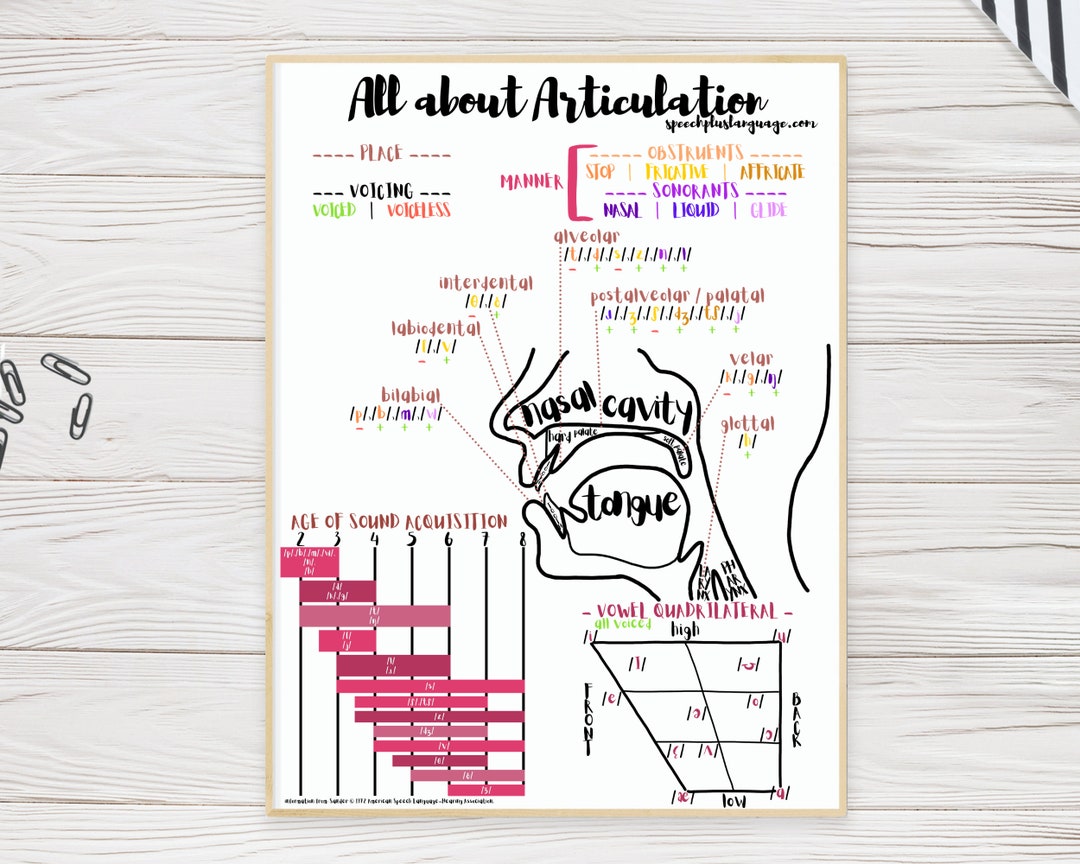 All about Articulation
speechpluslanguage.com
---- PLACE ----
--- VOICING ---
VOICED | VOICELESS
MANNER
----- OBSTRUENTS -----
STOP | FRICATIVE | AFFRICATE
---- SONORANTS ----
NASAL | LIQUID | GLIDE
alveolar
/t/,/d/,/s/,/z/,/n/,/l/
- + - + + +
interdental
- +
postalveolar / palatal
+ + - + + +
labiodental
/f/,/v/
- +
velar
/k/,/g/,/ŋ/
- + +
bilabial
/p/,/b/,/m/,/w/
- + + +
glottal
/h/
+
nasal cavity
hard palate
soft palate
tongue
LARYNX
PHARYNX
AGE OF SOUND ACQUISITION
2 3 4 5 6 7 8
/p/,/b/,/m/,/w/,
/n/,
/h/
/d/
/k/,/g/
/t/
/ŋ/
/f/
/j/
/l/
/s/
/ʃ/,/tʃ/
/z/
/dʒ/
/v/
/θ/
/ð/
/ʒ/
information from Sander © 1972 American Speech-Language-Hearing Association
- VOWEL QUADRILATERAL -
all voiced
high
/i/ /u/
/I/ /ʊ/
FRONT
BACK
/e/ /o/
/ə/
/ɔ/
/ʌ/
/æ/ /a/
low